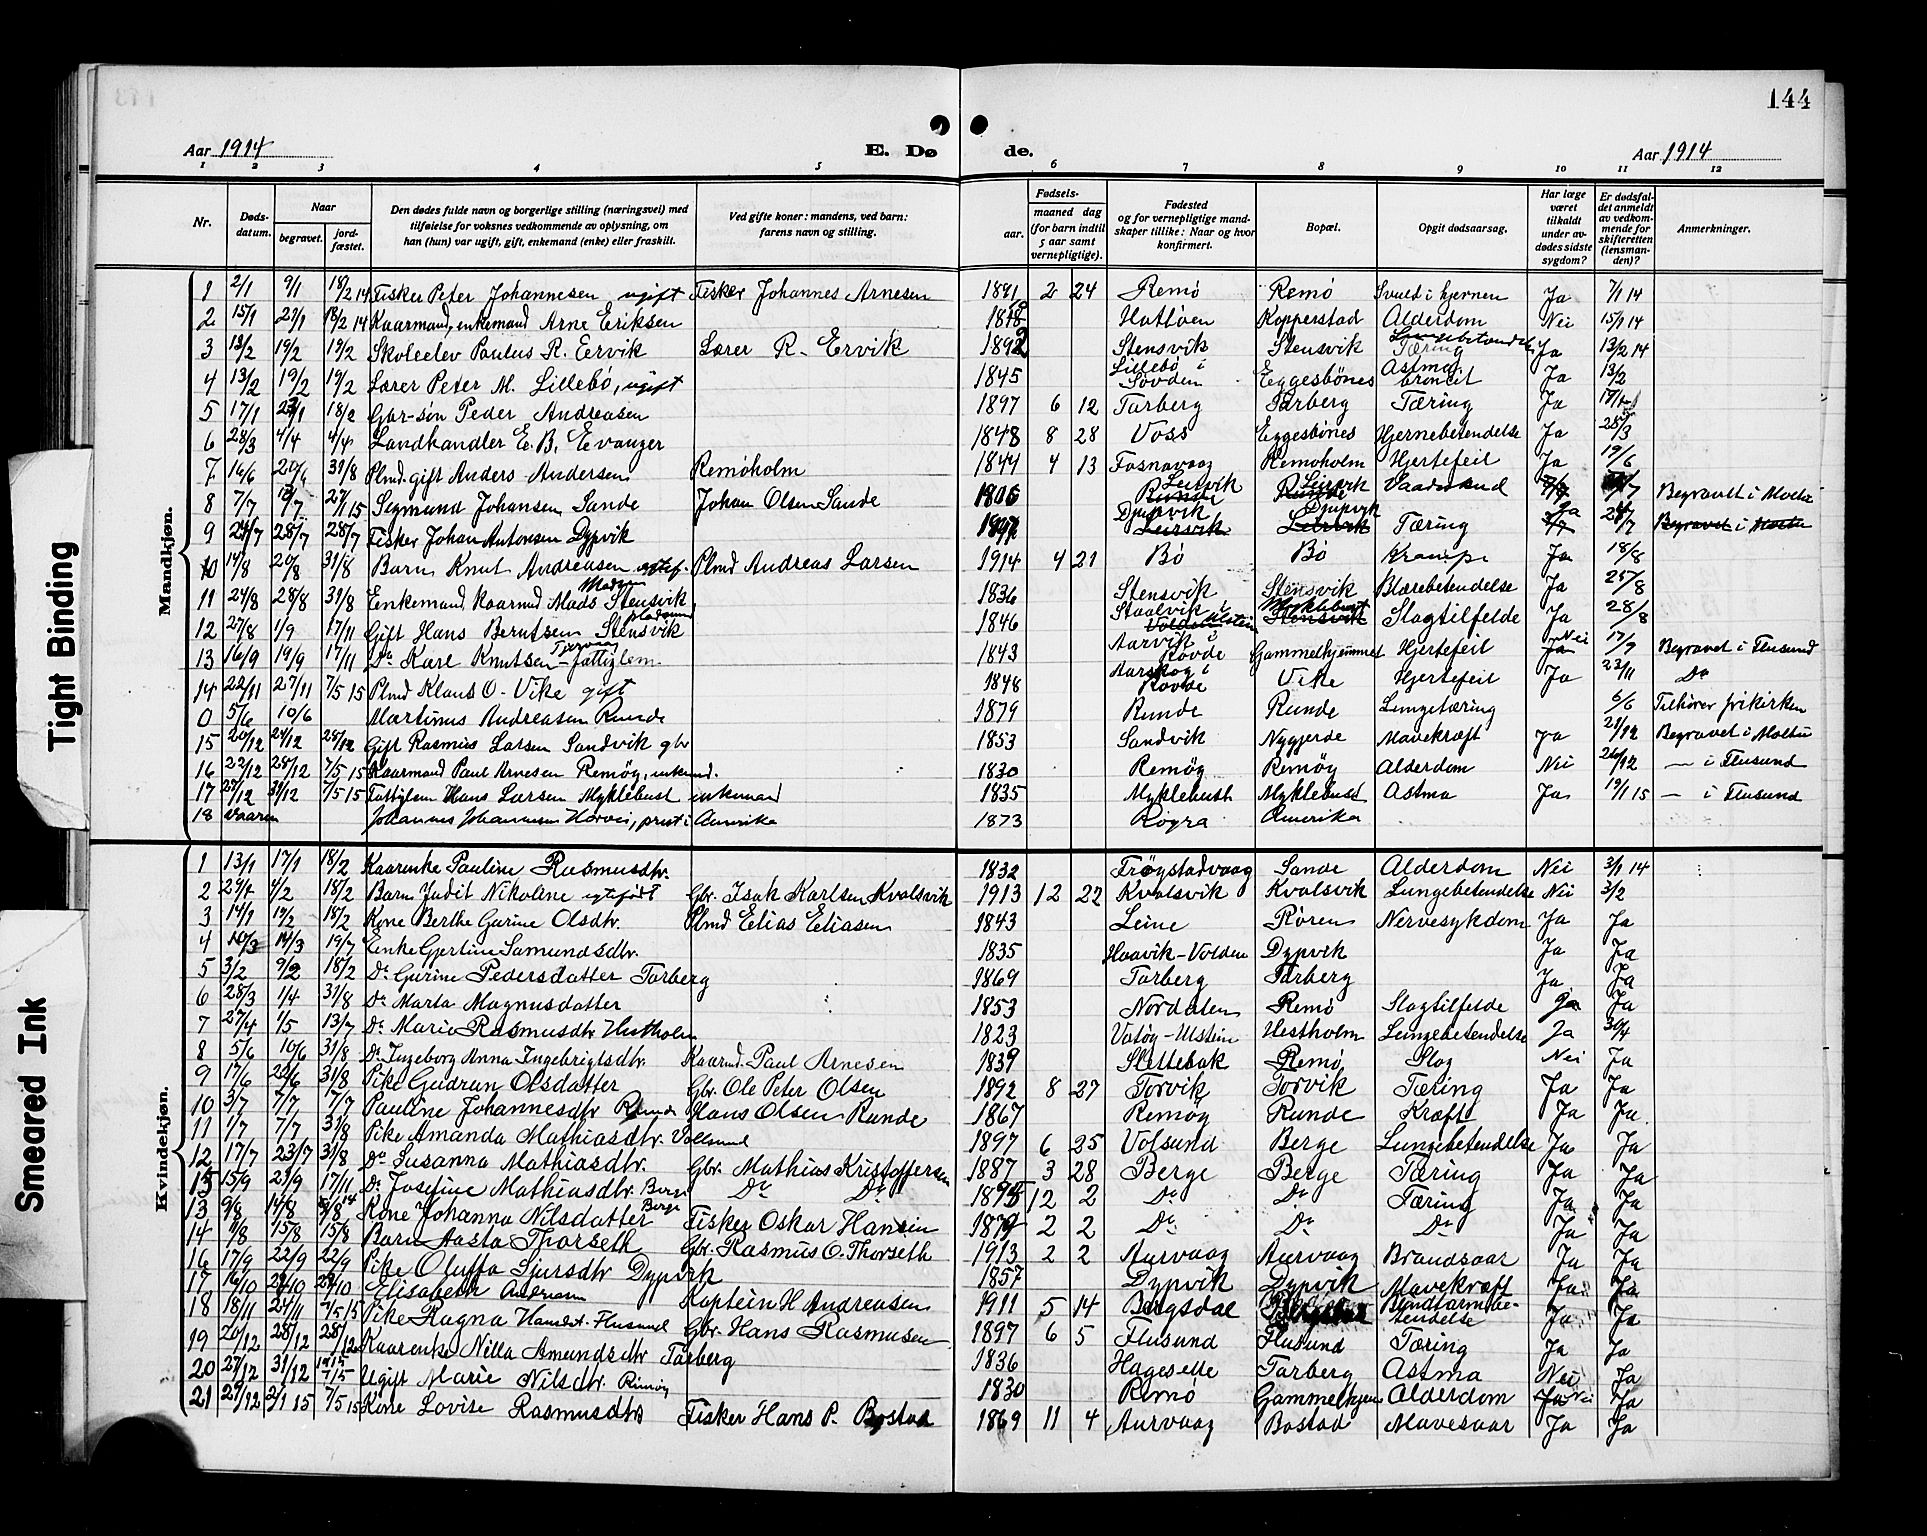 144
Aar 1914
E. Døde.
Aar 1914
1 2 3 4 5 6 7 8 9 10 11 12
Nr.
Døds-
datum.
Naar
begravet.
jord-
fæstet.
Den dødes fulde navn og borgerlige stilling (næringsvei) med
tilføielse for voksnes vedkommende av oplysning, om
han (hun) var ugift, gift, enkemand (enke) eller fraskilt.
Ved gifte koner: mandens, ved barn:
farens navn og stilling.
Fødsels-
aar.
maaned dag
(for barn indtil
5 aar samt
vernepligtige).
Fødested
og for vernepligtige mand-
skaper tillike: Naar og hvor
konfirmert.
Bopæl.
Opgit dødsaarsag.
Har læge
været
tilkaldt
under av-
dødes sidste
sygdom?
Er dødsfal-
det anmeldt
av vedkom-
mende for
skifteretten
(lensman-
den)?
Anmerkninger.
Mandkjøn.
1 2/1 9/1 18/2 14 Fisker Peter Johannesen ugift Fisker Johannes Arnesen 1891 2 24 Remö Remö Svuld i hjernen Ja 7/1 14
2 15/1 21/1 18/2 14 Kaarmand, enkemand Arne Eriksen 1818 Hattöen Kopperstad Alderdom Nei 15/1 14
3 13/2 19/2 19/2 Skoleelev Paulus R. Eervik Lærer R. Ervik 1892 Stensvik Stensvik Tæring Ja 13/2 14
4 13/2 19/2 19/2 Lærer Peter M. Lillebö, ugift 1845 Lillebö i Sövden Eggesbönes Astma broncit Ja 13/2
5 17/1 23/1 18/2 Gbr-sön Peder Andreasen 1897 6 12 Tarberg Tarberg Tæring Ja
6 28/3 4/4 4/4 Landhandler E. B. Evanger 1848 8 28 Voss Eggesbönes Hjernebetendelse Ja 28/3
7 16/6 20/6 31/8 Plmd. gift Anders Andersen Remöholm 1844 4 13 Fosnavaag Remöholm Hjertefeil Ja 19/6
8 7/7 12/7 27/1 15 Segmund Johansen Sande Johan Olsen Sande Leisvik Leisvik Vaadeskud Begravet i Moltu
9 24/7 28/7 28/7 Fisker Johan Antonsen Dypvik Djupvik Djupvik Tæring Ja Begravet i Moltu
10 14/8 20/8 31/8 Barn Knut Andreasen Plmd Andreas Larsen 1914 4 21 Bö Bö Krampe Ja 18/8
11 24/8 28/8 31/8 Enkemand Kaarmd Mads Stensvik 1836 Stensvik Stensvik Blærebetendelse Ja 25/8
12 27/8 1/9 17/11 Gift Hans Berntsen Stensvik 1846 Staalvik i Ulstein Myklebust Slagtilfelde Ja 28/8
13 16/9 19/9 17/11 Do Karl Knutsen - Fattiglem 1843 Aarvik i Rovde Gammelhjemmet Hjertefeil Nei 17/9 Begravet i Flusund
14 22/11 27/11 7/5 15 Plmd Klaus O. Vike gift 1848 Aarskog i Rovde Vike Hjertefeil Ja 23/11 Do
0 5/6 10/6 Martinus Andreasen Runde 1879 Runde Runde Lungetæring 6/6 Tilhører frikirken
15 20/12 24/12 25/12 Gift Rasmus Larsen Sandvik gbr 1853 Sandvik Nygjerde Mavekræft Ja 21/12 Begravet i Moltu
16 22/12 28/12 7/5 15 Kaarmand Paul Arnesen Remöy, enkemd. 1830 Remöy Remöy Alderdom Nei 26/12 — i Flusund
17 27/12 31/12 7/5 15 Fattiglem Hans Larsen Myklebust enkemand 1835 Myklebust Myklebust Astma Ja 19/1 15 — i Flusund
18 Vaaren Johannes Johannesen Hervei, prest i Amerika 1873 Rogra Amerika
Kvindekjøn.
1 13/1 17/1 18/2 Kaarenke Pauline Rasmusdtr. 1832 Frögstadvaag Sande Alderdom Nei 3/1 14
2 4/2 18/2 Barn Judit Nikoline egtefödt Gbr. Isak Karlsen Kvalsvik 1913 12 22 Kvalsvik Kvalsvik Lungebetendelse Nei 3/2
3 14/1 19/2 18/2 Kone Berthe Gurine Olsdtr. Plmd Elias Eliasen 1843 Leine Rören Nervesykdom Ja Ja
4 10/3 14/3 19/7 Enke Gjertine Samundsdtr. 1835 Haavik-Volden Dypvik Ja Ja
5 3/2 9/2 18/2 Do Gurine Pedersdatter Tarberg 1869 Tarberg Tarberg Ja Ja
6 28/3 1/4 31/8 Do Marta Magnusdatter 1853 Nordalen Remö Slagtilfelde Ja Ja
7 27/4 1/5 13/7 Do Marie Rasmusdtr Hestholm 1823 Vatöy-Ulstein Hestholm Lungebetendelse Ja 30/4
8 5/6 10/6 31/8 Do Ingeborg Anna Ingebrigtsdtr. Kaarmd. Paul Arnesen 1839 Slettebak Remö Slag Nei Ja
9 17/6 22/6 31/8 Pike Gudrun Olsdatter Gbr. Ole Peter Olsen 1892 8 27 Torvik Torvik Tæring Ja Ja
10 3/7 7/7 17/7 Pauline Johannesdtr Runde Hans Olsen Runde 1867 Remöy Runde Kræft Ja Ja
11 1/7 7/7 31/8 Pike Amanda Mathiasdtr. Volsund 1897 6 25 Volsund Berge Lungebetendelse Ja Ja
12 17/7 23/7 31/8 Do Susanna Mathiasdtr. Gbr. Mathias Kristoffersen 1887 3 28 Berge Berge Tæring Ja Ja
15 15/9 21/9 17/11 Do Josefine Mathiasdtr. Berge Do Do 1895 12 2 Do Do Tæring Ja Ja
13 9/8 14/8 Kone Johanna Nilsdatter Berge Fisker Oskar Hansen 2 2 Do Do Do Ja Ja
14 11/8 15/8 15/8 Barn Aasta Thorseth Gbr. Rasmus O. Thorseth 1913 2 2 Aurvaag Aurvaag Brandsaar Ja Ja
16 17/9 22/9 22/9 Pike Oluffa Sjursdtr Dypvik 1857 Dypvik Dypvik Mavekræft Ja Ja
17 16/10 Elisabeth Andreasen Kaptein H Andreasen 1911 5 14 Bergsdal Blindtarmbe-tendelse Ja Ja
18 18/11 24/11 7/5 15 Pike Ragna Flusund Gbr. Hans Rasmusen 1897 6 5 Flusund Flusund Tæring Ja Ja
19 20/12 28/12 28/12 Kaarenke Nilla Amundsdtr Tarberg 1836 Hageselle Tarberg Astma Nei Ja
20 27/12 31/12 7/5 Ugift Marie Nilsdtr. Remöy 1830 Remö Gammelhjem Alderdom Nei Ja
21 27/12 2/1 15 7/5 15 Kone Lovise Rasmusdtr Fisker Hans P. Bostad 1869 11 4 Aurvaag Bostad Mavesaar Ja Ja
Tight Binding
Smeared Ink